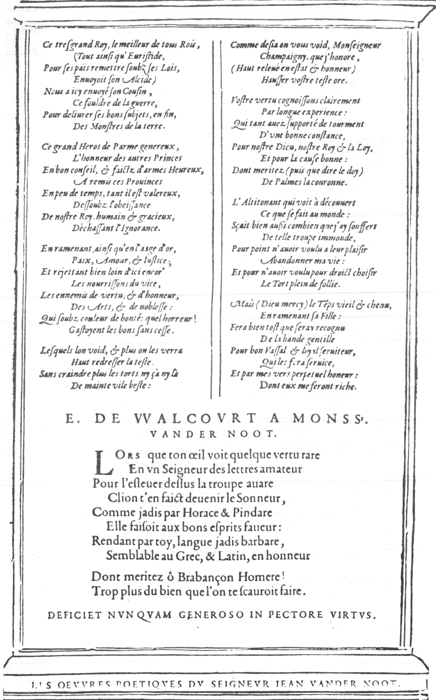 Ce tresgrand Roy, le meilleur de tous Rois,
(Tout ainsi qu'Euristide,
Pour ses pais remettre soubz ses Lois,
Envoyoit son Alcide)
Nous a icy envoyé son Cousin,
Ce fouldre de la guerre,
Pour deliurer ses bons subjets, en fin,
Des Monstres de la terre.
Ce grand Heros de Parme genereux,
L'honneur des autres Princes
En bon conseil, & faictz d'armes Heureux,
A remis ces Prouinces
En peu de temps, tant il est valereux,
Dessoubz l'obeissance
De nostre Roy humain & gracieux,
Dèchassant l'Ignorance.
En ramenant, ainsi qu'en l'aage d'or,
Paix, Amour, & Iustice,
Et rejettant bien loin d'ici encor'
Les nourrissons du vice,
Les ennemis de vertu, & d'honneur,
Des Arts, & de noblesse:
Qui soubz couleur de bonté: quel horreur!
Gastoyent les bons sans cesse.
Lesquels lon void, & plus on les verra
Haut redresser la teste
Sans craindre plus les torts ny çà ny là
De mainte vile beste:
Comme desia on vous void, Monseigneur
Champaigny, que j'honore,
(Haut releué en estat & honneur)
Hausser vostre teste ore.
Vostre vertu cognoissons clairement
Par longue experience:
Qui tant auez supporté de tourment
D'vne bonne constance,
Pour nostre Dieu, nostre Roy & la Loy,
Et pour la cause bonne:
Dont meritez (puis que dire le doy)
De Palmes la couronne.
L'Altitonant qui voit à découvert
Ce que se fait au monde:
Sçait bien aussi combien que j'ay souffert
De telle troupe immonde,
Pour point n'auoir voulu a leur plaisir
Abandonner ma vie:
Et pour n'auoir voulu pour droict choisir
Le Tort plein de follie.
Mais (Dieu mercy) le Tēps vieil & chenu,
En ramenant sa Fille:
Fera bien tost que seray recognu
De la bande gentille
Pour bon Vassal & loyal seruiteur,
Qui les fera service,
Et par mes vers perpetuel honneur:
Dont eux me feront riche.
E. DE VVALCOVRT A MONSSr.
VANDER NOOT.
LORS que ton œil voit quelque vertu rare
En vn Seigneur des lettres amateur
Pour l'esleuer dessus la troupe auare
Clion t'en faict deuenir le Sonneur,
Comme jadis par Horace & Pindare
Elle faisoit aux bons esprits faueur:
Rendant par toy, langue jadis barbare,
Semblable au Grec, & Latin, en honneur
Dont meritez ô Brabançon Homere!
Trop plus du bien que l'on te scauroit faire.
DEFICIET NVNQVAM GENEROSO IN PECTORE VIRTVS.
LES OEVVRES POETIQVES DV SEIGNEVR IEAN VANDER NOOT.